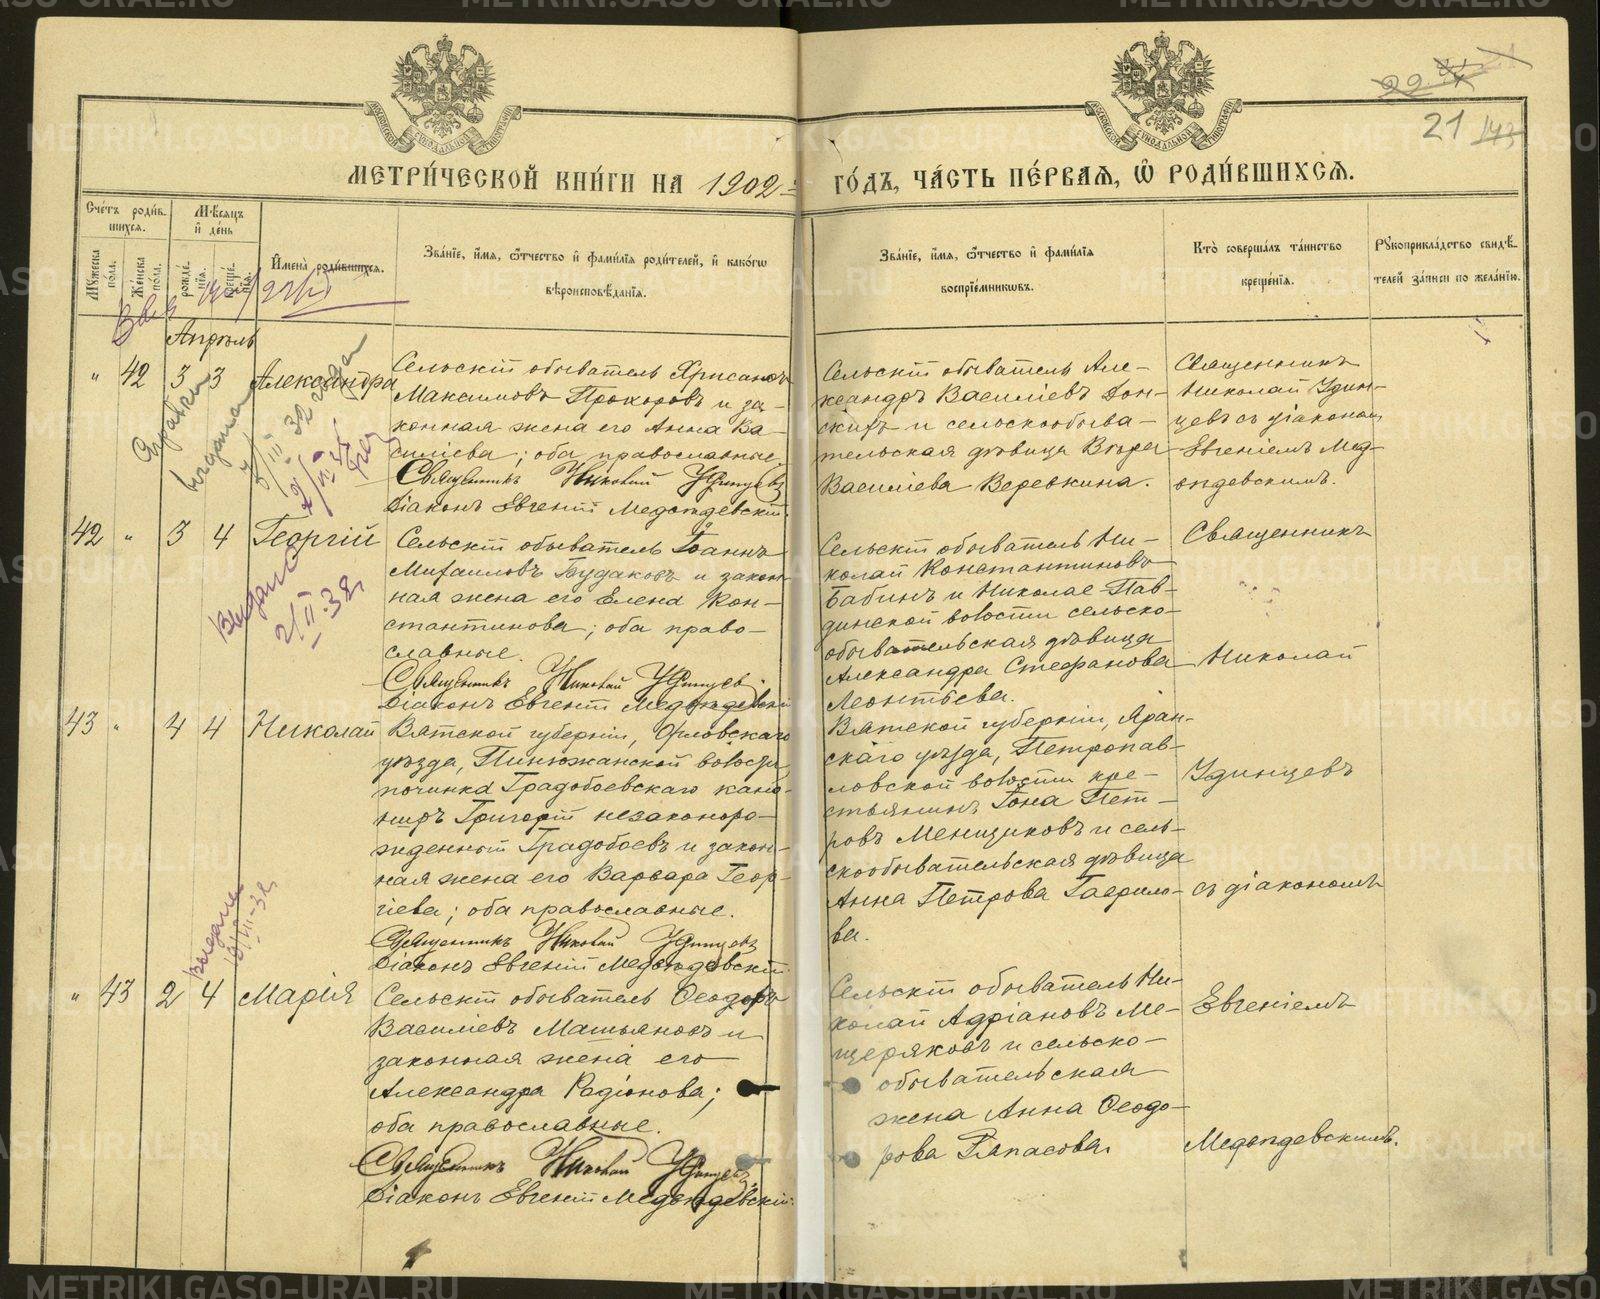 МЕТРИ́ЧЕСКОЙ КНИ́ГИ НА 1902 ГО́ДЪ, ЧА́СТЬ ПЕ́РВАѦ, Ѡ РОДИ́ВШИХСѦ.
21
Сче́тъ роди́в-
шихсѧ.
Мꙋжеска по́ла.
Же́нска по́ла.
М҄ѣсѧцъ
и҆ де́нь
рожде́нїѧ.
креще́нїѧ.
И҆мена̀ роди́вшихсѧ.
Зва́нїе, и҆́мѧ, ѻ҆́тчество и҆ фами́лїѧ роди́телей, и҆ како́гѡ
вѣроисповѣ́данїѧ.
Зва́нїе, и҆́мѧ, ѻ҆́тчество и҆ фами́лїѧ
воспрїе́мникѡвъ.
Кто̀ соверша́лъ та́инство
креще́нїѧ.
Рꙋкоприкла́дство свидѣ́-
телей за́писи по жела́нїю.
Апрѣль
" 42 3 3 Александра
Сельскій обыватель Хрисанѳъ
Максимовъ Прохоровъ и за-
конная жена его Анна Ва-
силіева; оба православные
Священникъ Николай Удинцевъ
Діаконъ Евгеній Медвѣдевскій
Сельскій обыватель Але-
ксандръ Василіевъ Дон-
скихъ и сельскообыва-
тельская дѣвица Вѣра
Василіева Веревкина.
Священникъ
Николай Удин-
цевъ съ діакономъ
Евгеніемъ Мед-
вѣдевскимъ.
Справки
выдана
3/III 32 года
42 " 3 4 Георгій
Сельскій обыватель Іоаннъ
Михаиловъ Будаковъ и закон-
ная жена его Елена Кон-
стантинова; оба право-
славные.
Священникъ Николай Удинцевъ
Діаконъ Евгеній Медвѣдевскій
Сельскій обыватель Ни-
колай Константиновъ
Бабинъ и Николае-Пав-
динской волости сельско-
обывательская дѣвица
Александра Стефанова
Леонтьева.
Священникъ
Николай
Выдано
2/II 38г
43 " 4 4 Николай
Вятской губерніи, Орловскаго
уѣзда, Пинюжанской волости,
починка Градобоевскаго кано-
ниръ Григорій незаконоро-
жденной Градобоевъ и закон-
ная жена его Варвара Геор-
гіева; оба православные.
Священникъ Николай Удинцевъ
Діаконъ Евгеній Медвѣдевскій
Вятской губерніи, Яран-
скаго уѣзда, Петропав-
ловской волости кре-
стьянинъ Іона Пет-
ровъ Менщиковъ и сель-
скообывательская дѣвица
Анна Петрова Гаврило-
ва.
Удинцевъ
съ діакономъ
Выдана
" 43 2 4 Марія
Сельскій обыватель Ѳеодоръ
Василіевъ Матьяновъ и
законная жена его
Александра Родіонова;
оба православные.
Священникъ Николай Удинцевъ
Діаконъ Евгеній Медвѣдевскій.
Сельскій обыватель Ни-
колай Адріановъ Ме-
щеряковъ и сельско-
обывательская
жена Анна Ѳеодо-
рова Запасова.
Евгеніемъ
Медвѣдевскимъ.
METRIKI.GASO-URAL.RU